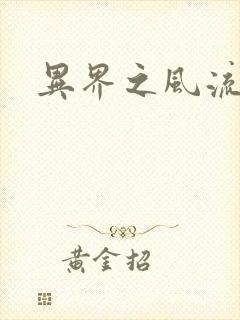 異界之風流
黃金招